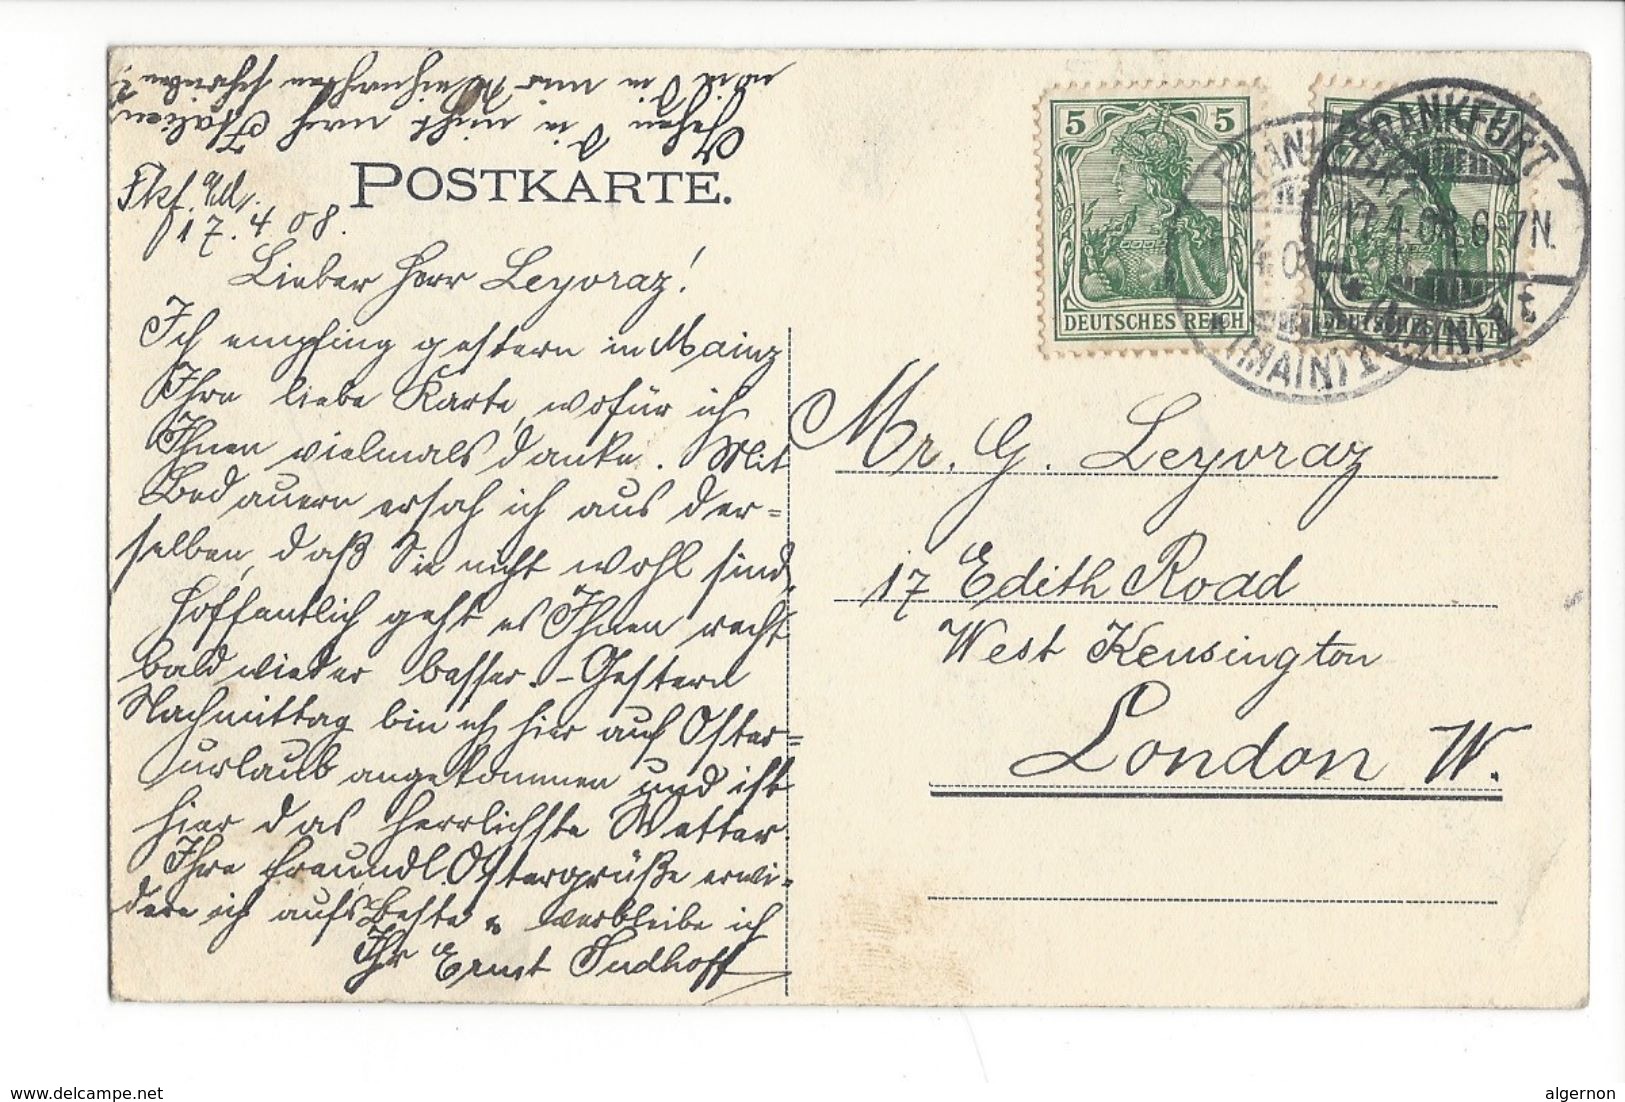 Gehen Sie nicht nach Italien?
wie Sie mir Weihnachten schrieben?
POSTKARTE.
Fkf.
17.4.08.
Lieber Herr Leyvraz!
Ich empfing gestern in Mainz
Ihre liebe Karte, wofür ich
Ihnen vielmals danke. Mit
Bedauern ersah ich aus der=
selben, daß Sie nicht wohl sind.
Hoffentlich geht es Ihnen recht
bald wieder besser. – Gestern
Nachmittag bin ich hier auf Oster=
urlaub angekommen und ist
hier das herrlichste Wetter.
Ihre freundl. Ostergrüße erwi=
dere ich aufs Beste u. verbleibe ich
Ihr Ernst Sudhoff
5 5
DEUTSCHES REICH
DEUTSCHES REICH
FRANKFURT
17.4.08. 6-7N.
* (MAIN) 1. t
(MAIN) 1.
Mr. G. Leyvraz
17 Edith Road
West Kensington
London W.
https://www.delcampe.net
algernon